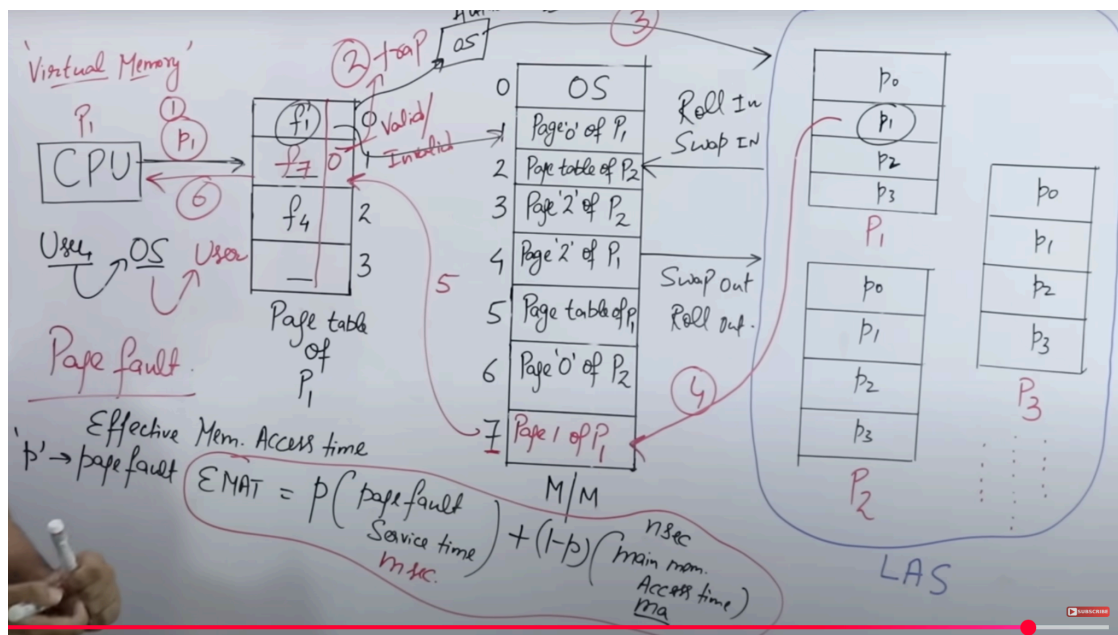 'Virtual Memory'
P1
①
p1
CPU
⑥
User OS User
Page fault
② trap
OS
③
f1 0
Valid/
Invalid
f7 0 1
f4 2
— 3
Page table
of
P1
5
0 OS
1 Page '0' of P1
2 Page table of P2
3 Page '2' of P2
4 Page '2' of P1
5 Page table of P1
6 Page '0' of P2
7 Page 1 of P1
M/M
Roll In
Swap IN
Swap Out
Roll out.
④
p0
p1
p2
p3
P1
p0
p1
p2
p3
P2
p0
p1
p2
p3
P3
LAS
Effective Mem. Access time
'p' → page fault
EMAT = p ( page fault Service time ) + (1-p) ( main mem. Access time )
msec.
nsec
ma
SUBSCRIBE